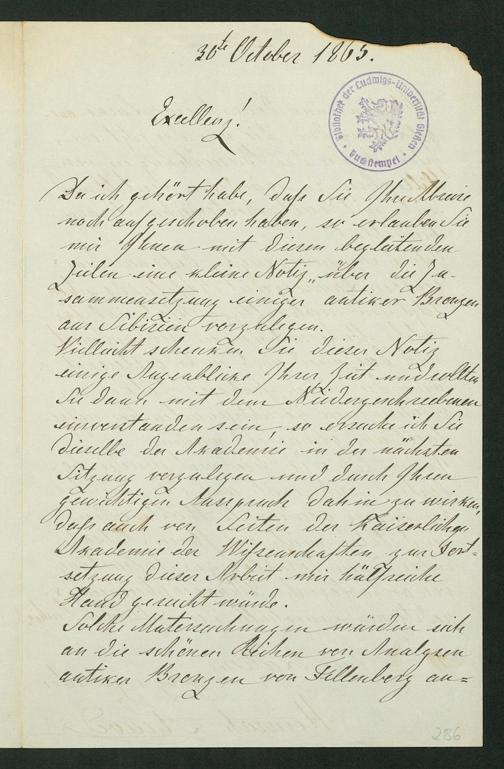 30te October 1865.
Bibliothek der Ludwigs-Universität Giessen
Buchstempel
Excellenz!
Da ich gehört habe, daß Sie Ihre Abreise
noch aufgeschoben haben, so erlauben Sie
mir Ihnen mit diesen begleitenden
Zeilen eine kleine Notiz „über die Zu-
sammensetzung einiger antiker Bronzen
aus Sibirien vorzulegen.
Vielleicht schenken Sie dieser Notiz
einige Augenblicke Ihrer Zeit und sollten
Sie dann mit dem Niedergeschriebenen
einverstanden sein, so ersuche ich Sie
dieselbe der Akademie in der nächsten
Sitzung vorzulegen und durch Ihren
gewichtigen Ausspruch dahin zu wirken,
daß auch von Seiten der Kaiserlichen
Akademie der Wissenschaften zur Fort-
setzung dieser Arbeit mir hülfreiche
Hand gereicht würde.
Solche Untersuchungen würden sich
an die schönen Reihen von Analysen
antiker Bronzen von Fellenberg an=
286